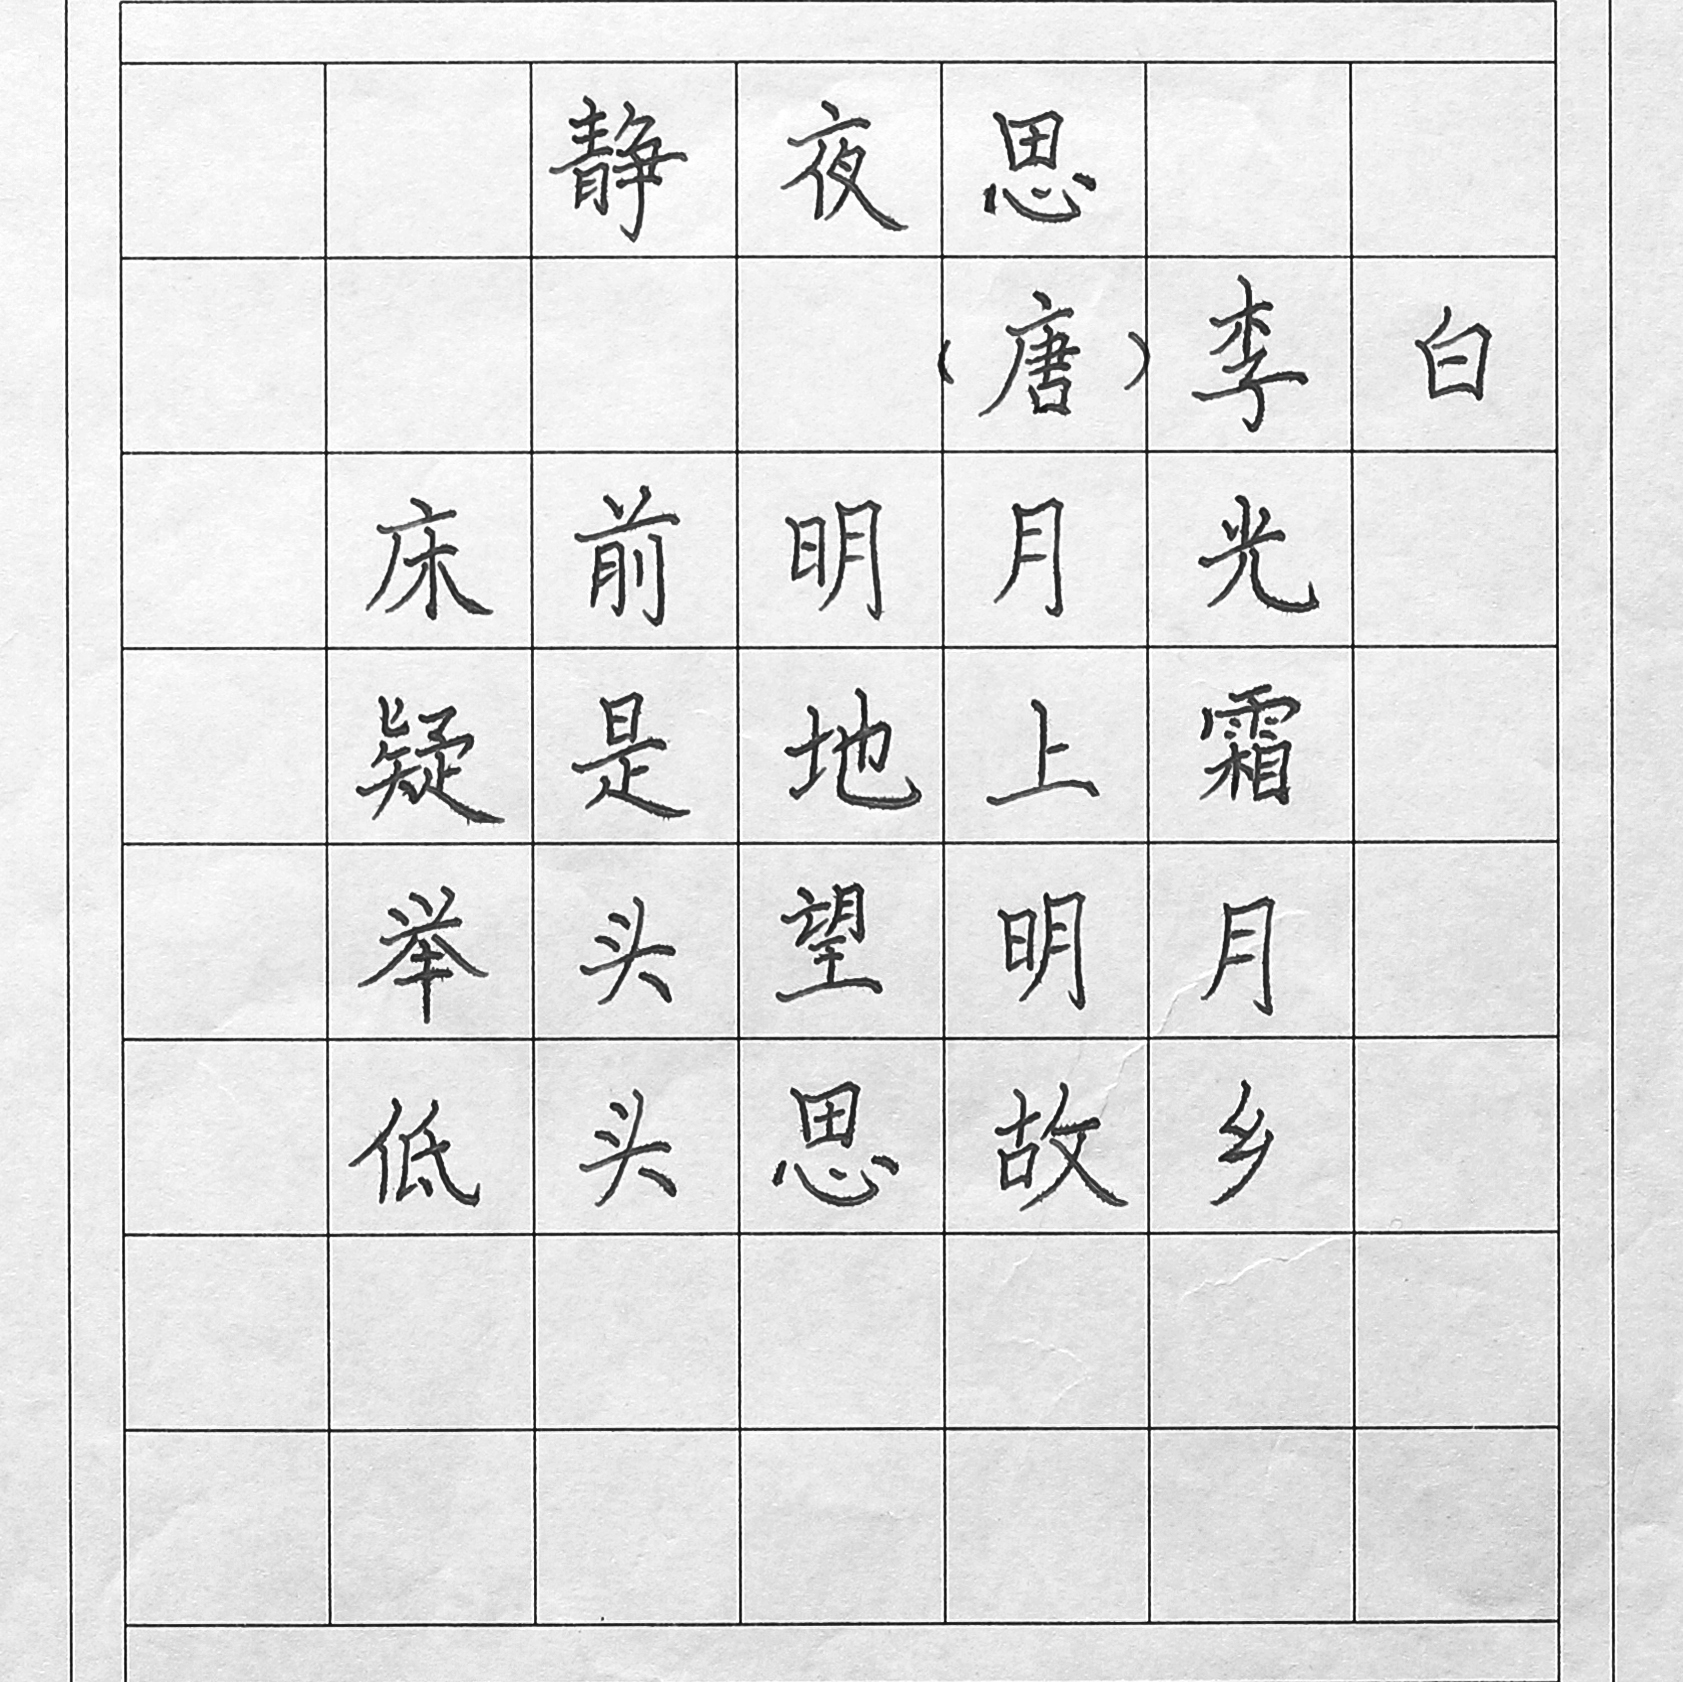 静夜思
(唐)李白
床前明月光
疑是地上霜
举头望明月
低头思故乡